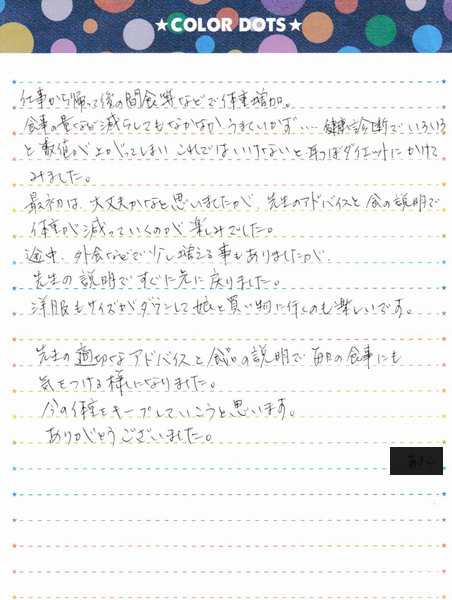 ★COLOR DOTS★
仕事から帰って後の間食等などで体重増加。
食事の量など減らしてもなかなかうまくいかず… 健康診断でいろいろ
と数値が上がってしまい これではいけないと耳つぼダイエットにかけて
みました。
最初は、大丈夫かなと思いましたが、先生のアドバイスと食の説明で
体重が減っていくのが楽しみでした。
途中、外食などで少し増える事もありましたが、
先生の説明ですぐに元に戻りました。
洋服もサイズがダウンして娘と買い物に行くのも楽しいです。
先生の適切なアドバイスと食品の説明で毎日の食事にも
気をつける様になりました。
今の体重をキープしていこうと思います。
ありがとうございました。